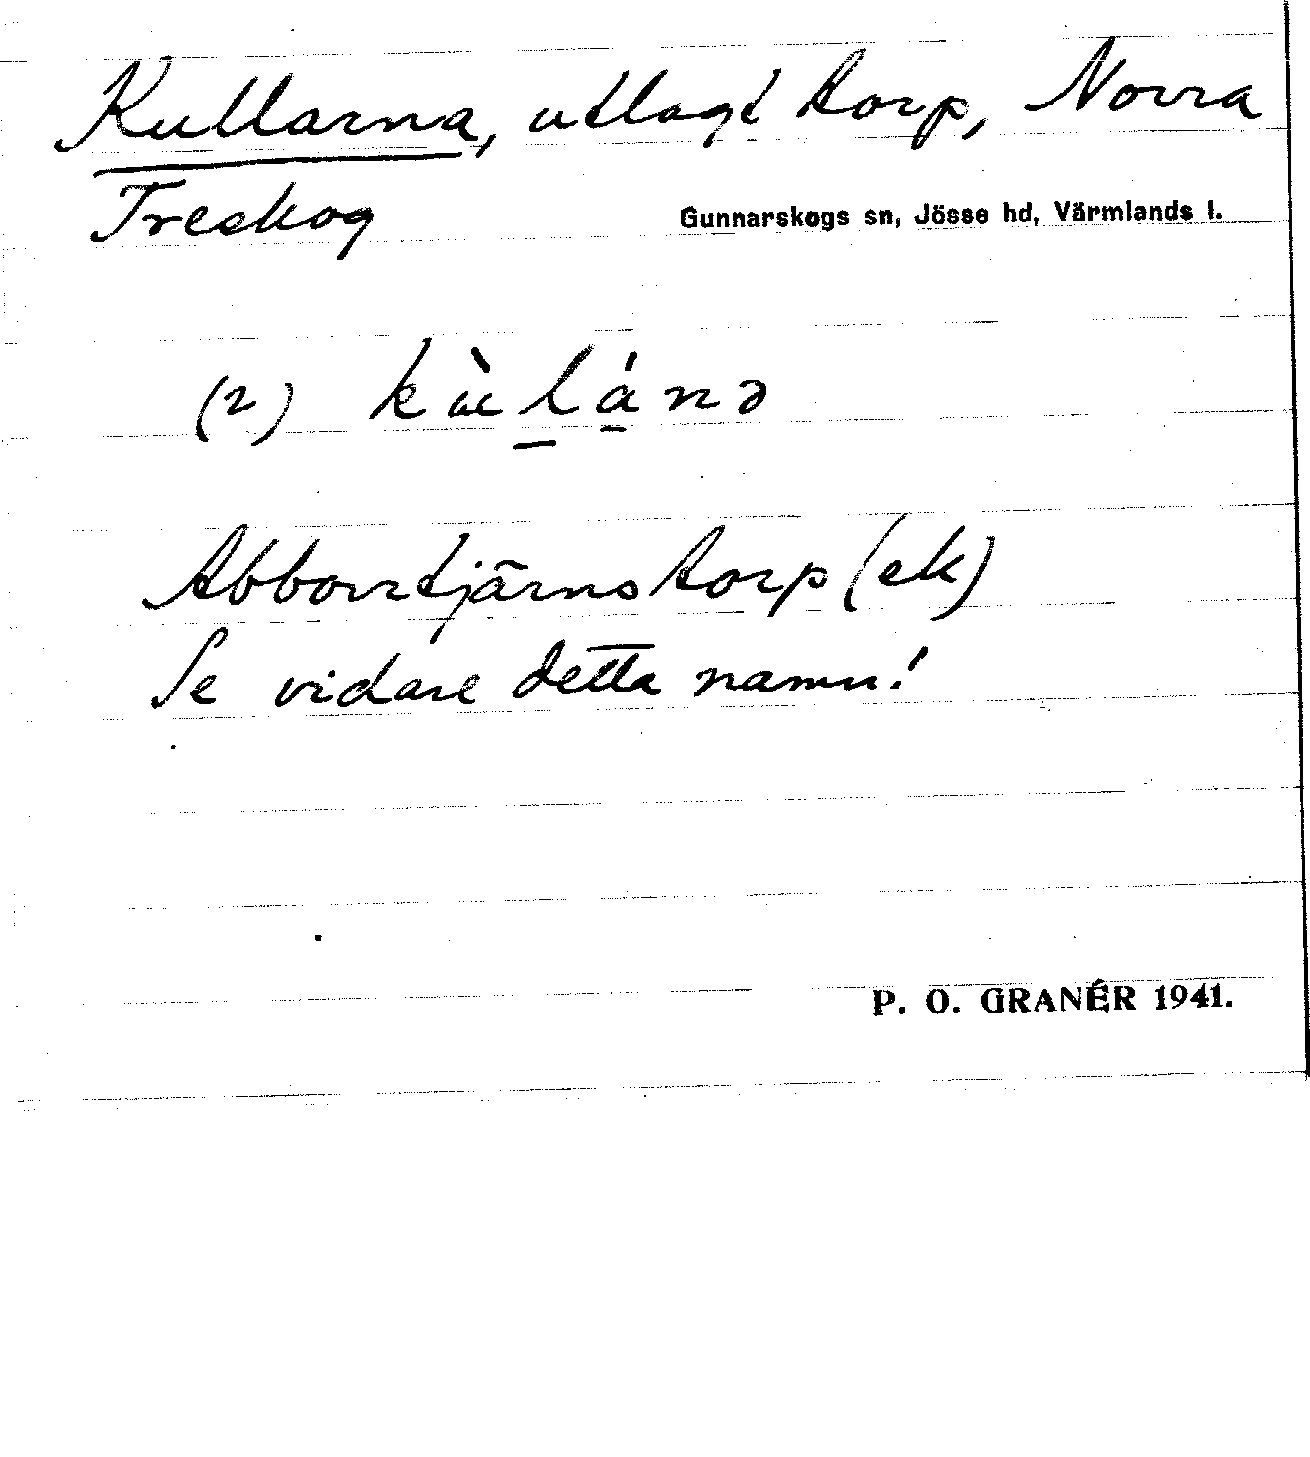 Kullarna, utlagt torp, Norra
Treskog
Gunnarskogs sn, Jösse hd, Värmlands l.
(2)
Abborrtjärnstorp (ek)
Se vidare detta namn!
P. O. GRANÉR 1941.